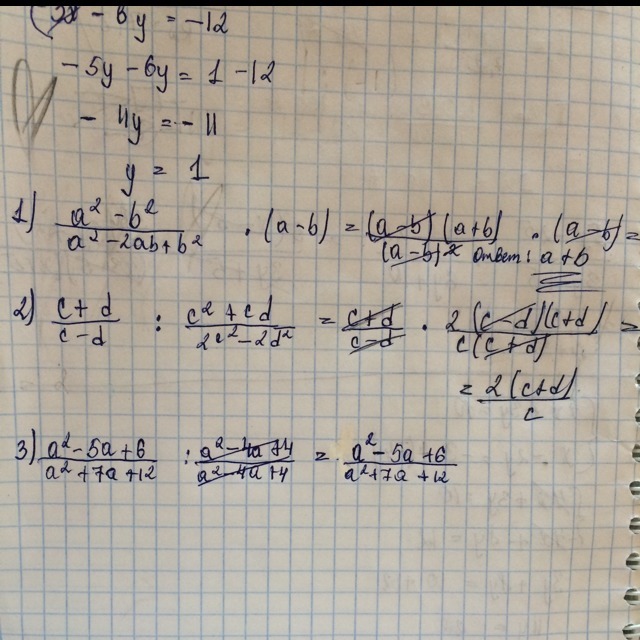 (2x - 6y = -12
-5y - 6y = 1 - 12
- 11y = - 11
y = 1
1) a² - b² / a² - 2ab + b² · (a - b) = (a - b)(a + b) / (a - b)² · (a - b) =
Ответ: a + b
2) c + d / c - d : c² + cd / 2c² - 2d² = c + d / c - d · 2(c - d)(c + d) / c(c + d) =
= 2(c + d) / c
3) a² - 5a + 6 / a² + 7a + 12 : a² - 4a + 4 / a² - 4a + 4 = a² - 5a + 6 / a² + 7a + 12